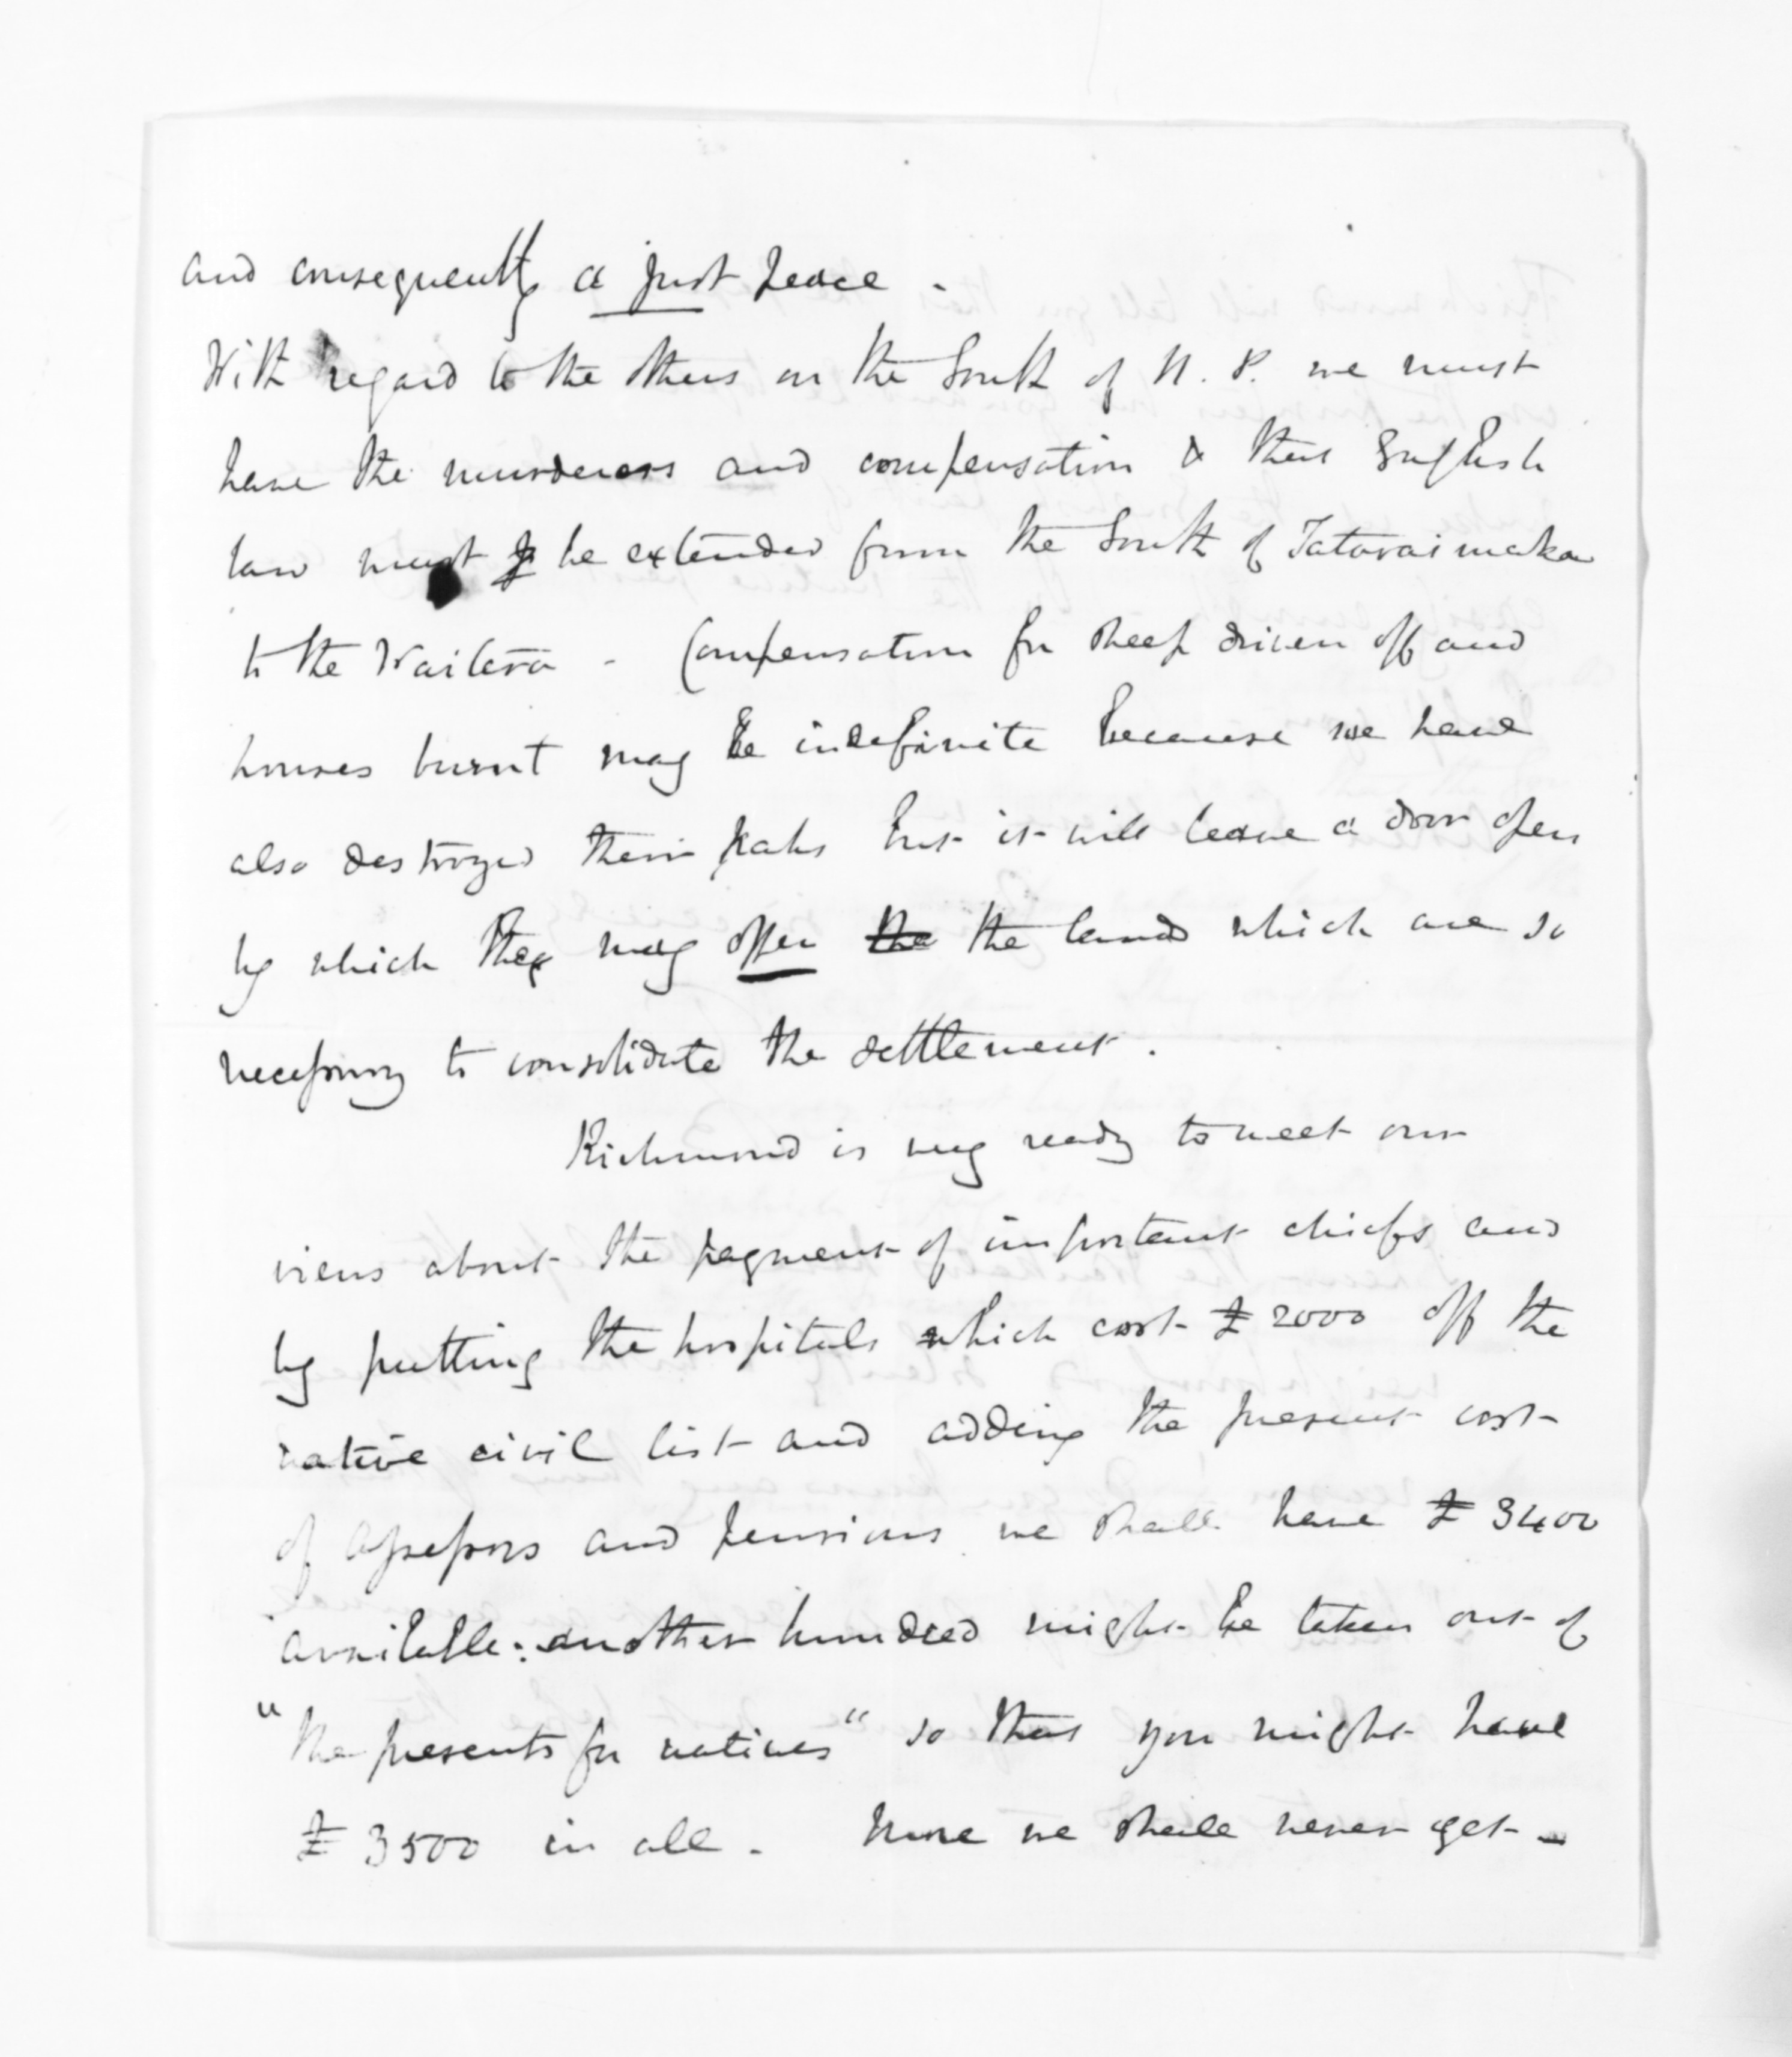 and consequently a just peace.
With regard to the others on the South of N. P. we must
have the murderers and compensation & that English
law must be extended from the South of Tataraimaka
to the Waitera - Compensation for sheep driven off and
houses burnt may be indefinite because we have
also destroyed their pahs but it will leave a door open
by which they may offer the the lands which are so
necessary to consolidate the settlement.
Richmond is very ready to meet our
views about the payment of important chiefs and
by putting the hospitals which cost £2000 off the
native civil list and adding the present cost
of assessors and pensions we shall have £3400
available: another hundred might be taken out of
"the presents for natives" so that you might have
£3500 in all. More we shall never get -